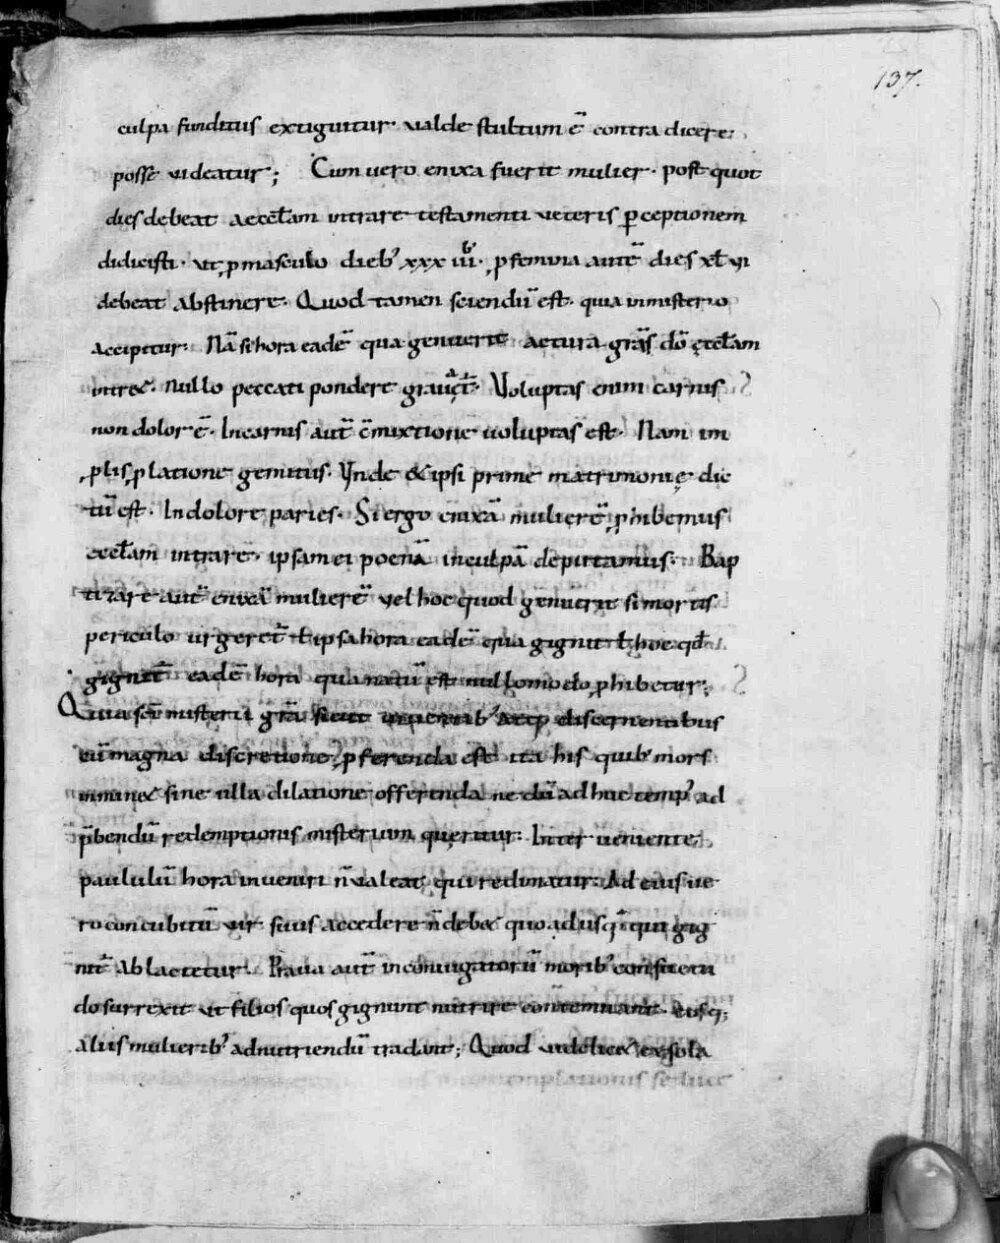 137.
culpa funditus extiguitur. valde stultum ē contra dicere.
posse videatur; Cum vero enixa fuerit mulier. post quot
dies debeat aeccl̄am intrare testamenti veteris p̱ceptionem
didicisti. ut p masculo dieb' xxx iii. p femina autē dies xl vi
debeat abstinere. Quod tamen sciendū est. quia in misterio
accipitur. Nā si hora eadē qua genuerit actura grās dō ęccl̄am
intr&. nullo peccati pondere grauat̄. Voluptas enim carnis
non dolor ē. In carnis aut̄ cōmixtione voluptas est. Nam in
plis platione gemitus. Vnde & ipsi prime matri omniū dic
tū est. In dolore paries. Si ergo enixā mulierē phibemus
eccl̄am intrare. ipsam ei poenā in culpā deputamus. Bap
tizare aut̄ enixā mulierē vel hoc quod genuerit si mortis
periculo urgeret̄ ł ipsa hora eadē qua gignit ł hoc qđ
gignit̄ eadē hora qua natū est nullomodo phibetur;
Quia scī misterii grā sicut viuentib' atq; discernentibus
cū magna discretione p̱ferenda est ita his quib' mors
imminet sine ulla dilatione offerenda ne dū adhuc temp' ad
p̄bendū redemptionis misterium queritur. Inter veniente
paululū hora inveniri n̄ valeat qui redimatur. Ad eius ve
ro concubitū vir suus accedere n̄ deb& quoadusq; qui gig
nit̄ ablactetur. Praua aut̄ in coniugatorū morib' consuetu
do surrexit ut filios quos gignunt nutrire contemnant. eosq;
aliis mulierib' ad nutriendū tradant; Quod videlic& ex sola